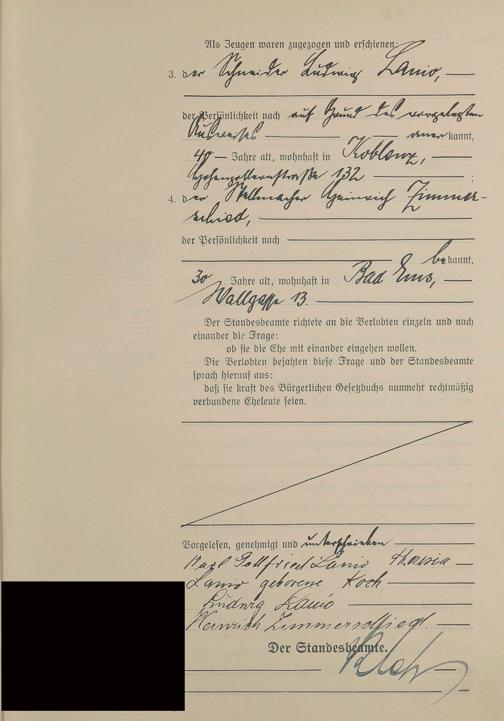 Als Zeugen waren zugezogen und erschienen:
3. der Schneider Ludwig Lanio,
der Persönlichkeit nach auf Grund des vorgelegten
Ausweises anerkannt,
40 Jahre alt, wohnhaft in Koblenz,
Hohenzollernstraße 132
4. der Stellmacher Heinrich Zimmer-
schied,
der Persönlichkeit nach
bekannt,
30 Jahre alt, wohnhaft in Bad Ems,
Wallgasse 13.
Der Standesbeamte richtete an die Verlobten einzeln und nach
einander die Frage:
ob sie die Ehe mit einander eingehen wollen.
Die Verlobten bejahten diese Frage und der Standesbeamte
sprach hierauf aus:
daß sie kraft des Bürgerlichen Gesetzbuchs nunmehr rechtmäßig
verbundene Eheleute seien.
Vorgelesen, genehmigt und unterschrieben
Karl Gottfried Lanio Theresia
Lanio geborene Koch
Ludwig Lanio
Heinrich Zimmerschied.
Der Standesbeamte.